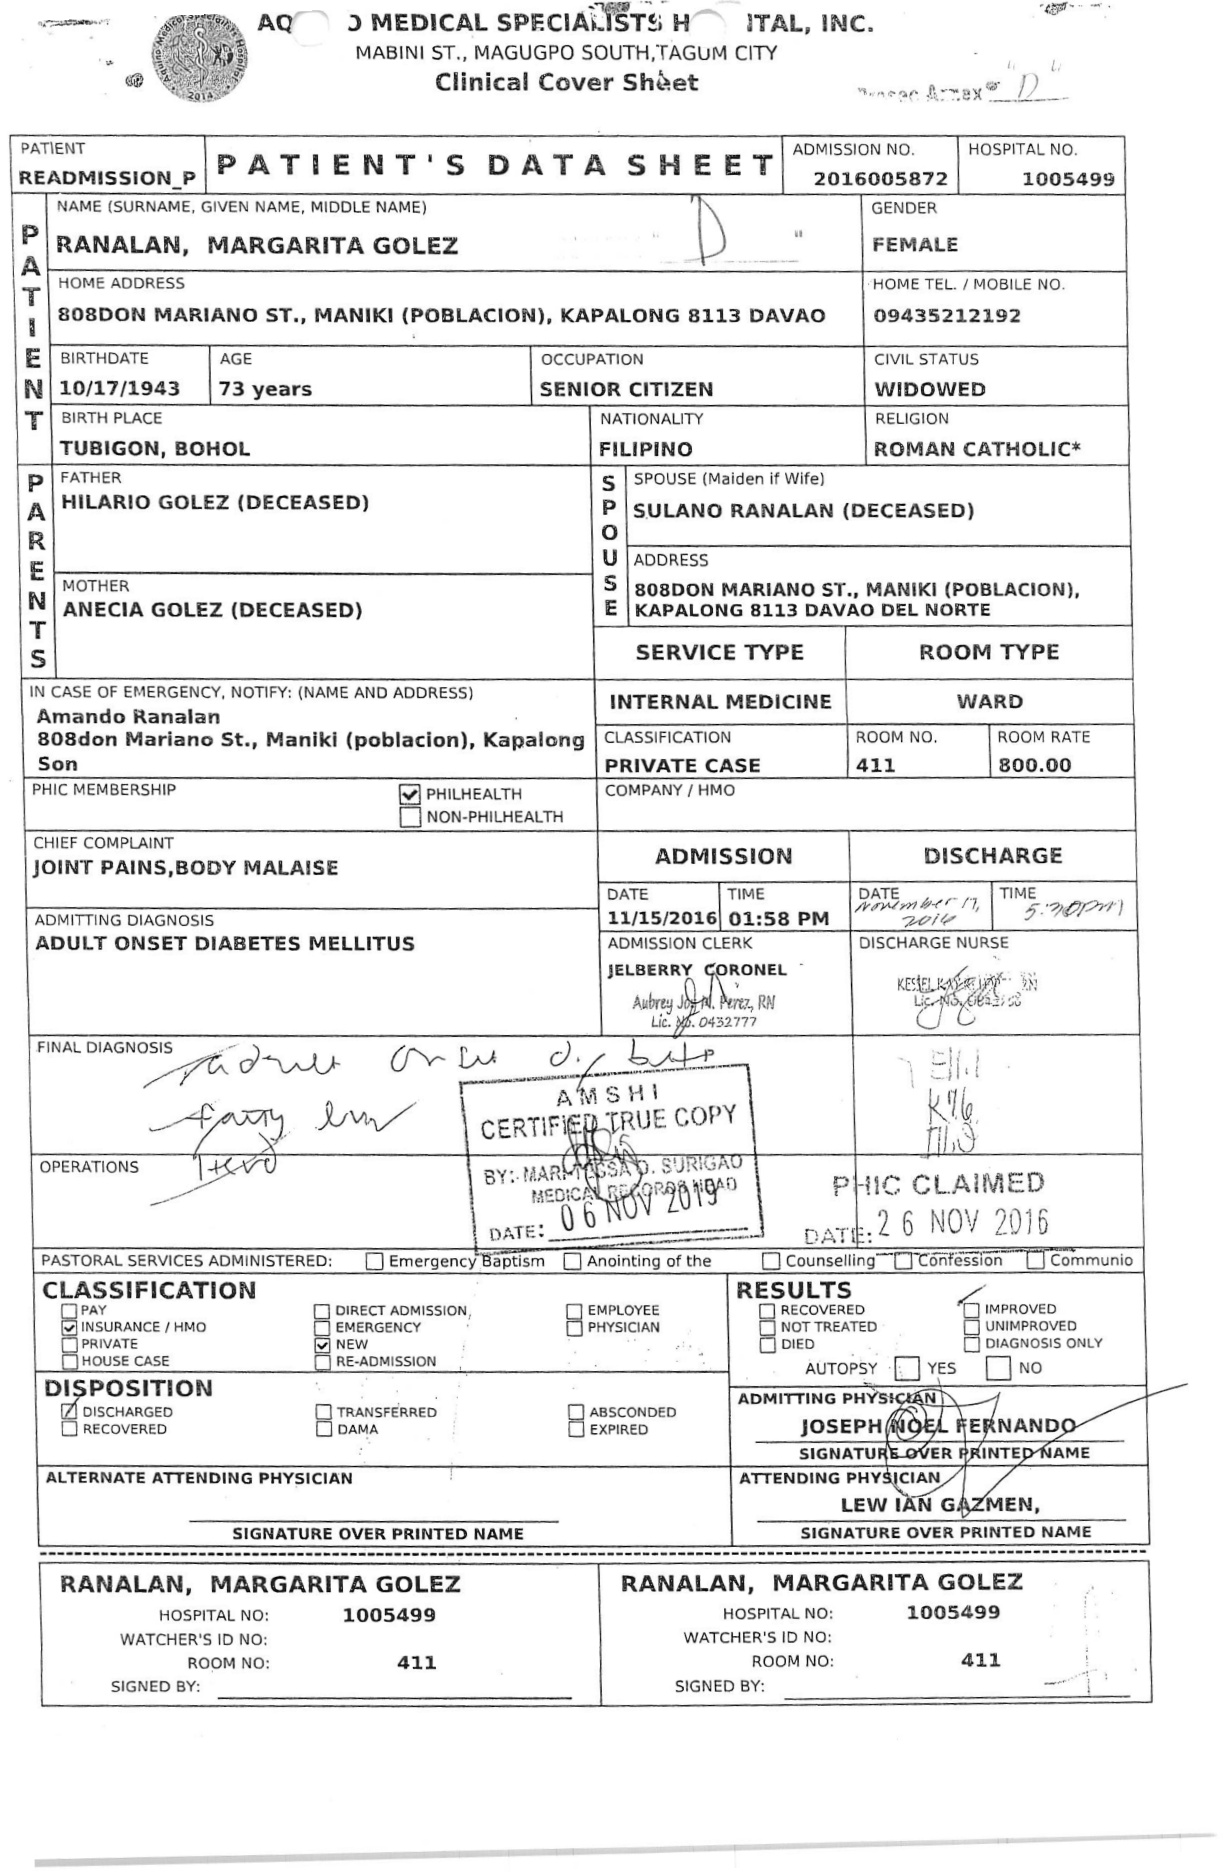 MEDICAL SPECIALISTS
INC.
MABINI ST., MAGUGPO SOUTH,TAGUM CITY
Clinical Cover Sheet
Annex "D"
PATIENT
READMISSION_P
PATIENT'S DATA SHEET
ADMISSION NO.
2016005872
HOSPITAL NO.
1005499
PATIENT
NAME (SURNAME, GIVEN NAME, MIDDLE NAME)
RANALAN, MARGARITA GOLEZ
"D"
GENDER
FEMALE
HOME ADDRESS
808DON MARIANO ST., MANIKI (POBLACION), KAPALONG 8113 DAVAO
HOME TEL. / MOBILE NO.
09435212192
BIRTHDATE
10/17/1943
AGE
73 years
OCCUPATION
SENIOR CITIZEN
CIVIL STATUS
WIDOWED
BIRTH PLACE
TUBIGON, BOHOL
NATIONALITY
FILIPINO
RELIGION
ROMAN CATHOLIC*
PARENTS
FATHER
HILARIO GOLEZ (DECEASED)
MOTHER
ANECIA GOLEZ (DECEASED)
SPOUSE
SPOUSE (Maiden if Wife)
SULANO RANALAN (DECEASED)
ADDRESS
808DON MARIANO ST., MANIKI (POBLACION),
KAPALONG 8113 DAVAO DEL NORTE
SERVICE TYPE
ROOM TYPE
IN CASE OF EMERGENCY, NOTIFY: (NAME AND ADDRESS)
Amando Ranalan
808don Mariano St., Maniki (poblacion), Kapalong
Son
INTERNAL MEDICINE
WARD
CLASSIFICATION
PRIVATE CASE
ROOM NO.
411
ROOM RATE
800.00
PHIC MEMBERSHIP
PHILHEALTH
NON-PHILHEALTH
COMPANY / HMO
CHIEF COMPLAINT
JOINT PAINS,BODY MALAISE
ADMISSION
DISCHARGE
DATE
11/15/2016
TIME
01:58 PM
DATE
November 17,
2016
TIME
5:30pm
ADMITTING DIAGNOSIS
ADULT ONSET DIABETES MELLITUS
ADMISSION CLERK
JELBERRY CORONEL
Aubrey Joy N. Perez, RN
Lic. No. 0432777
DISCHARGE NURSE
KESSEL
RN
Lic. No.
FINAL DIAGNOSIS
adult onset
fatty liver
E11.1
K76
OPERATIONS
AMSHI
CERTIFIED TRUE COPY
BY: D. SURIGAO
MEDICAL RECORDS HEAD
DATE: 06 NOV 2019
PHIC CLAIMED
DATE: 26 NOV 2016
PASTORAL SERVICES ADMINISTERED: Emergency Baptism Anointing of the Counselling Confession Communio
CLASSIFICATION
PAY
INSURANCE / HMO
PRIVATE
HOUSE CASE
DIRECT ADMISSION
EMERGENCY
NEW
RE-ADMISSION
EMPLOYEE
PHYSICIAN
RESULTS
RECOVERED
NOT TREATED
DIED
IMPROVED
UNIMPROVED
DIAGNOSIS ONLY
AUTOPSY YES NO
DISPOSITION
DISCHARGED
RECOVERED
TRANSFERRED
DAMA
ABSCONDED
EXPIRED
ADMITTING PHYSICIAN
JOSEPH NOEL FERNANDO
SIGNATURE OVER PRINTED NAME
ALTERNATE ATTENDING PHYSICIAN
SIGNATURE OVER PRINTED NAME
ATTENDING PHYSICIAN
LEW IAN GAZMEN,
SIGNATURE OVER PRINTED NAME
RANALAN, MARGARITA GOLEZ
HOSPITAL NO: 1005499
WATCHER'S ID NO:
ROOM NO: 411
SIGNED BY:
RANALAN, MARGARITA GOLEZ
HOSPITAL NO: 1005499
WATCHER'S ID NO:
ROOM NO: 411
SIGNED BY: